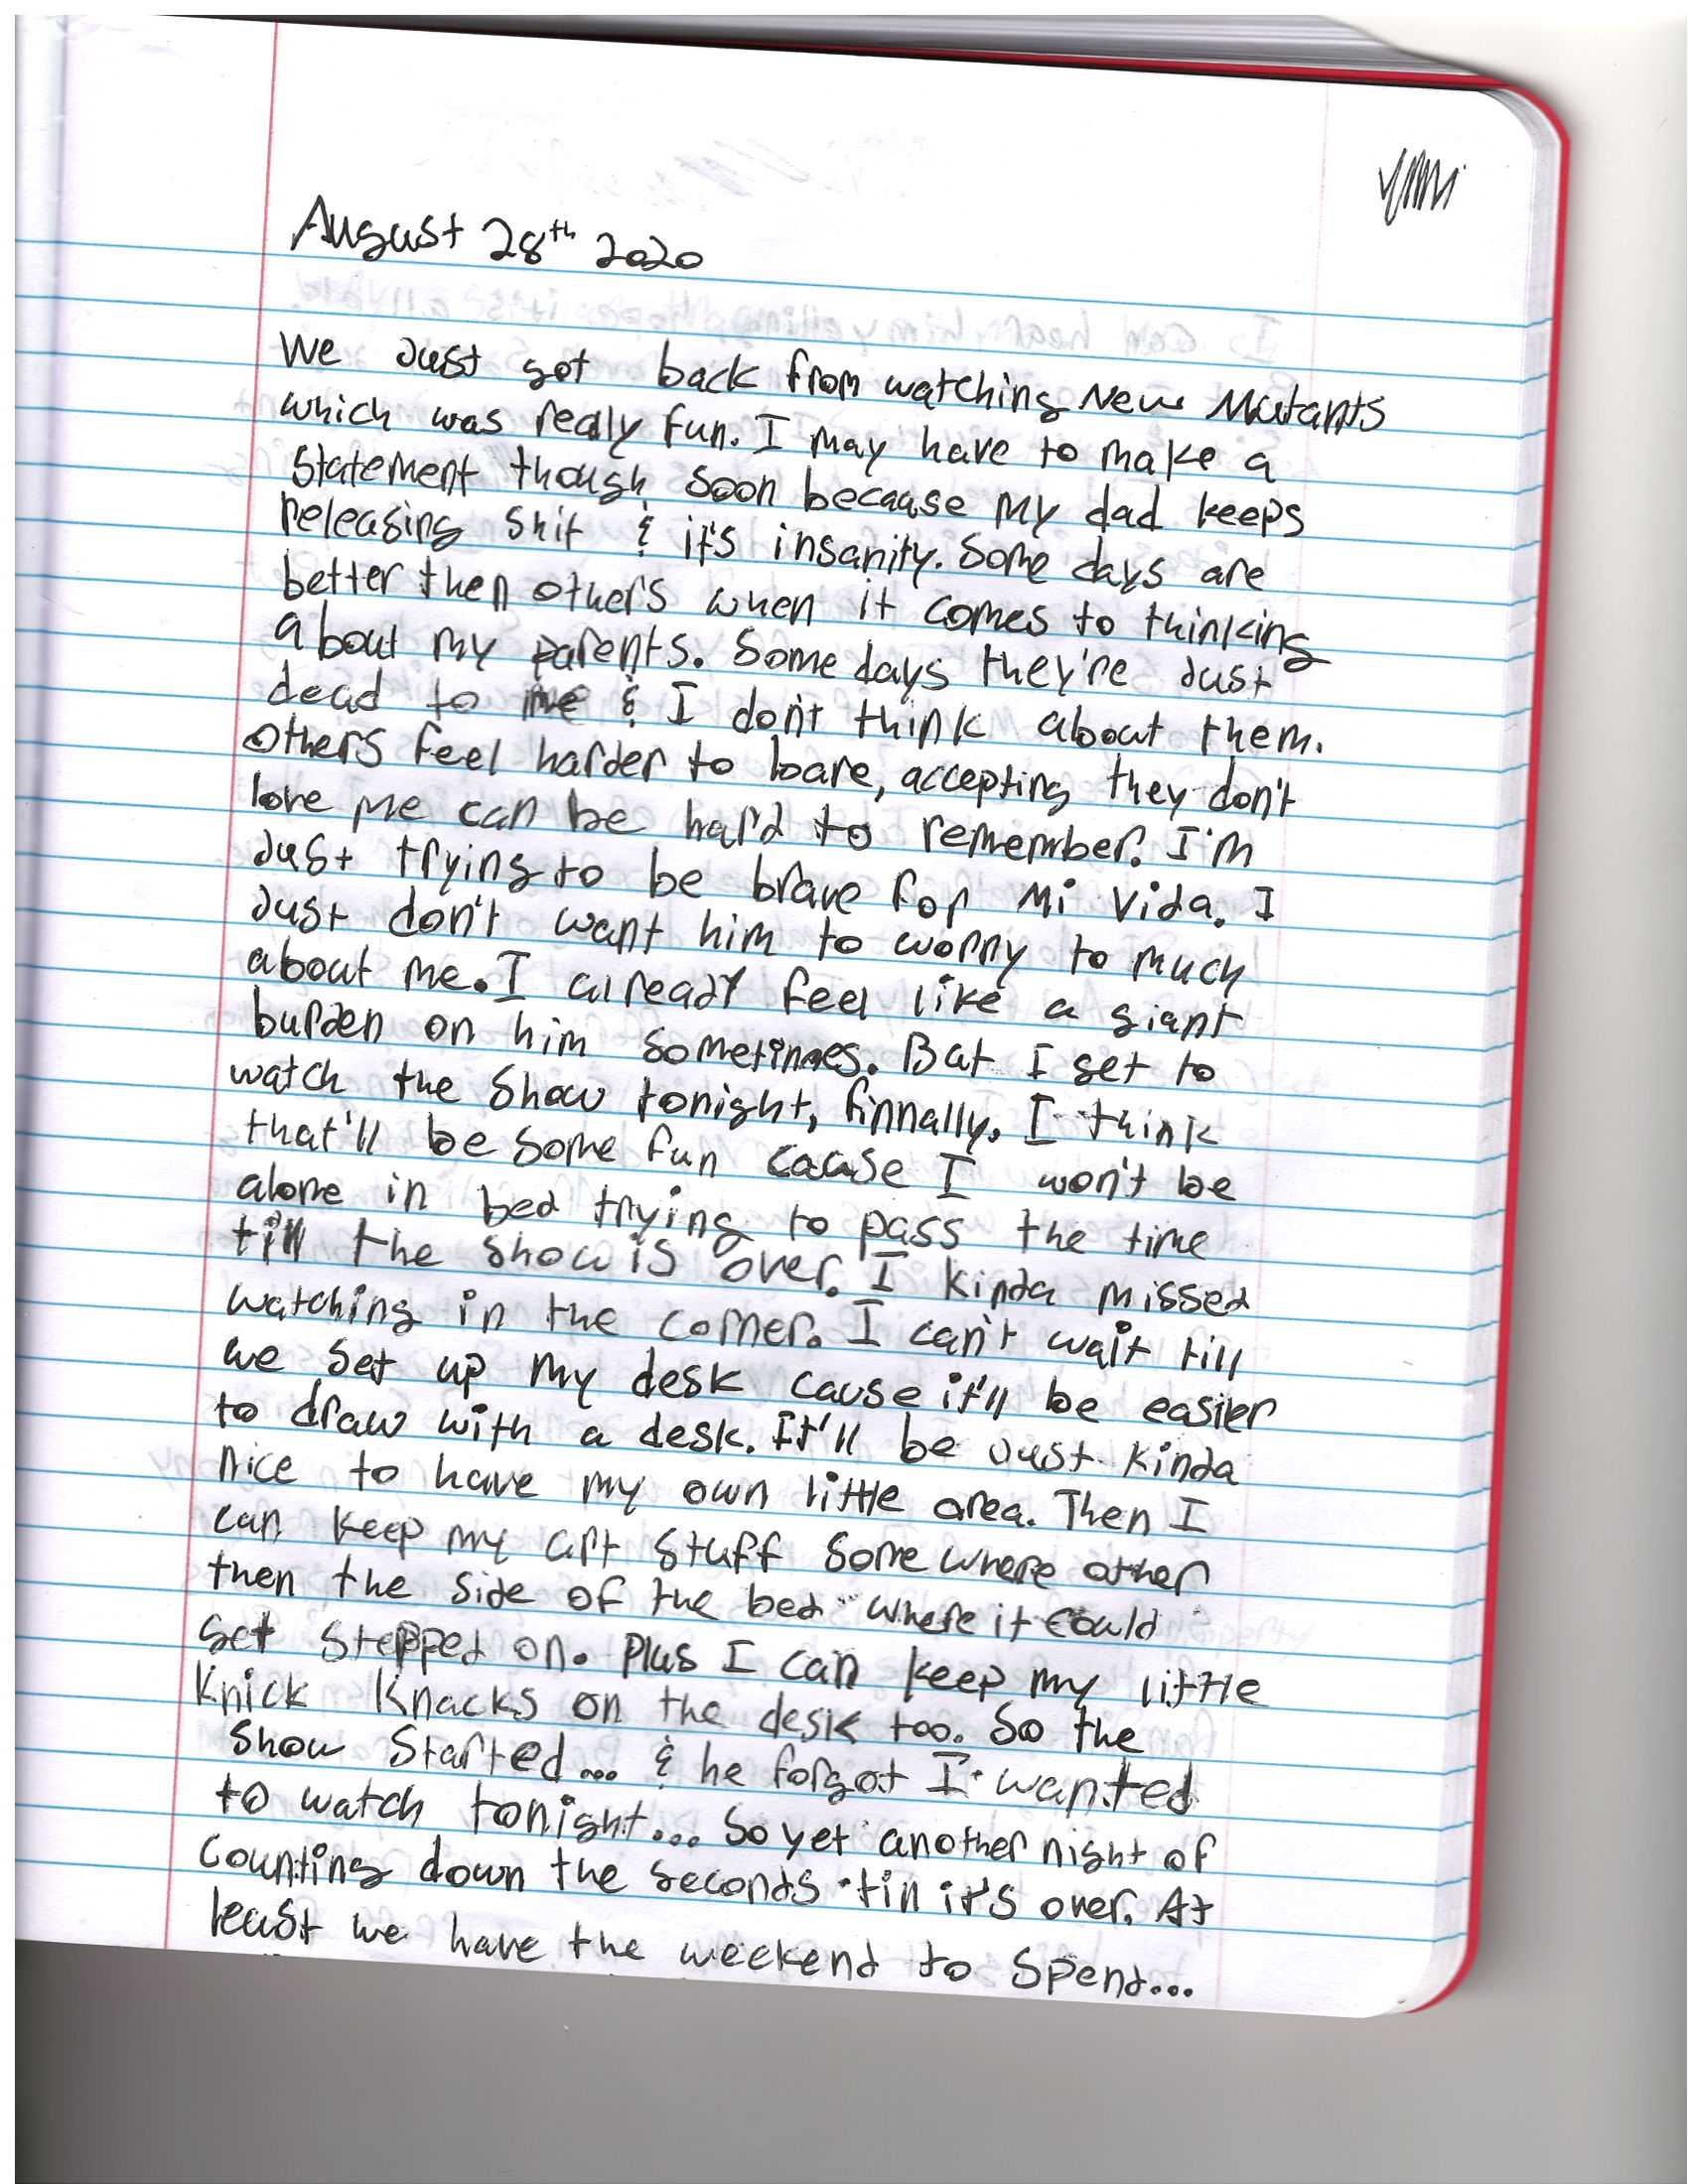 August 28th 2020
We Just got back from watching New Mutants
which was really fun. I may have to make a
statement though soon because my dad keeps
releasing shit & it's insanity. Some days are
better then other's when it comes to thinking
about my parents. Some days they're Just
dead to me & I don't think about them.
Others feel harder to bare, accepting they don't
love me can be hard to remember. I'm
Just trying to be brave for Mi Vida. I
Just don't want him to worry to much
about me. I already feel like a giant
burden on him sometimes. But I get to
watch the show tonight, finnally. I think
that'll be some fun cause I won't be
alone in bed trying to pass the time
till the show is over. I kinda missed
watching in the corner. I can't wait till
we set up my desk cause it'll be easier
to draw with a desk. It'll be Just kinda
nice to have my own little area. Then I
can keep my art stuff some where other
then the side of the bed where it could
get stepped on. Plus I can keep my little
Knick Knacks on the desk too. So the
show started... & he forgot I wanted
to watch tonight... So yet another night of
counting down the seconds till it's over. At
least we have the weekend to spend...